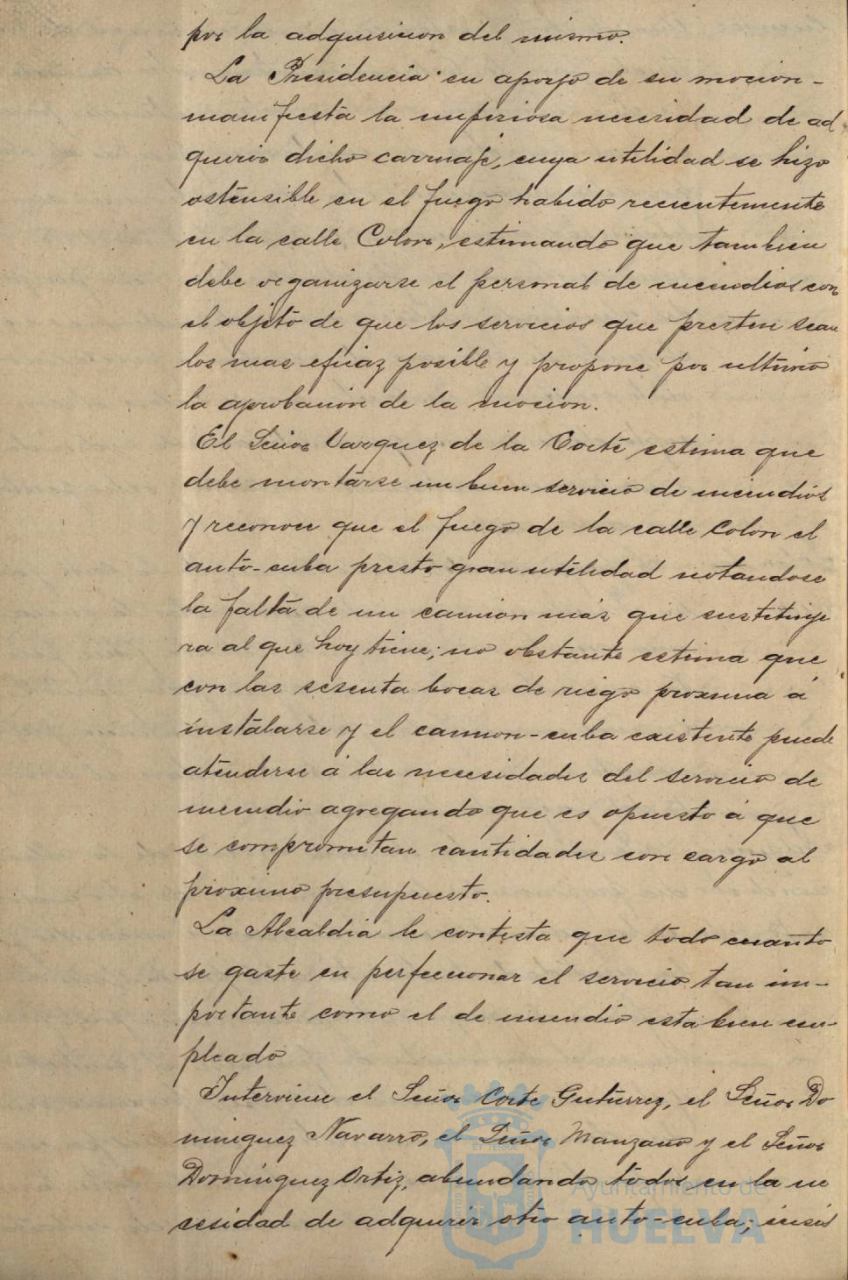 por la adquisicion del mismo.
La Presidencia en apoyo de su mocion-
manifiesta la imperiosa necesidad de ad
querir dicho carruaje, cuya utilidad se hizo
ostensible en el fuego habido recientemente
en la calle Colon, estimando que tambien
debe organizarse el personal de incendios con
el objeto de que los servicios que presten sean
los mas eficaz posible y propone por ultimo
la aprobación de la mocion.
El Señor Vazquez de la Corte estima que
debe montarse un buen servicio de incendios
y reconoce que el fuego de la calle Colon el
auto-cuba presto gran utilidad notandose
la falta de un camion más que sustituye
ra al que hoy tiene; no obstante estima que
con las sesenta bocas de riego proxima á
instalarse y el camion-cuba existente puede
atenderse á las necesidades del servicio de
incendio agregando que es opuesto á que
se comprometan cantidades con cargo al
proximo presupuesto.
La Alcaldia le contesta que todo cuanto
se gaste en perfeccionar el servicio tan im-
portante como el de incendio esta bien em-
pleado
Interviene el Señor Corte Gutierrez, el Señor Do
minguez Navarro, el Señor Manzano y el Señor
Domínguez Ortiz, abundando todos en la ne
cesidad de adquirir otro auto-cuba; insis
Ayuntamiento de
HUELVA